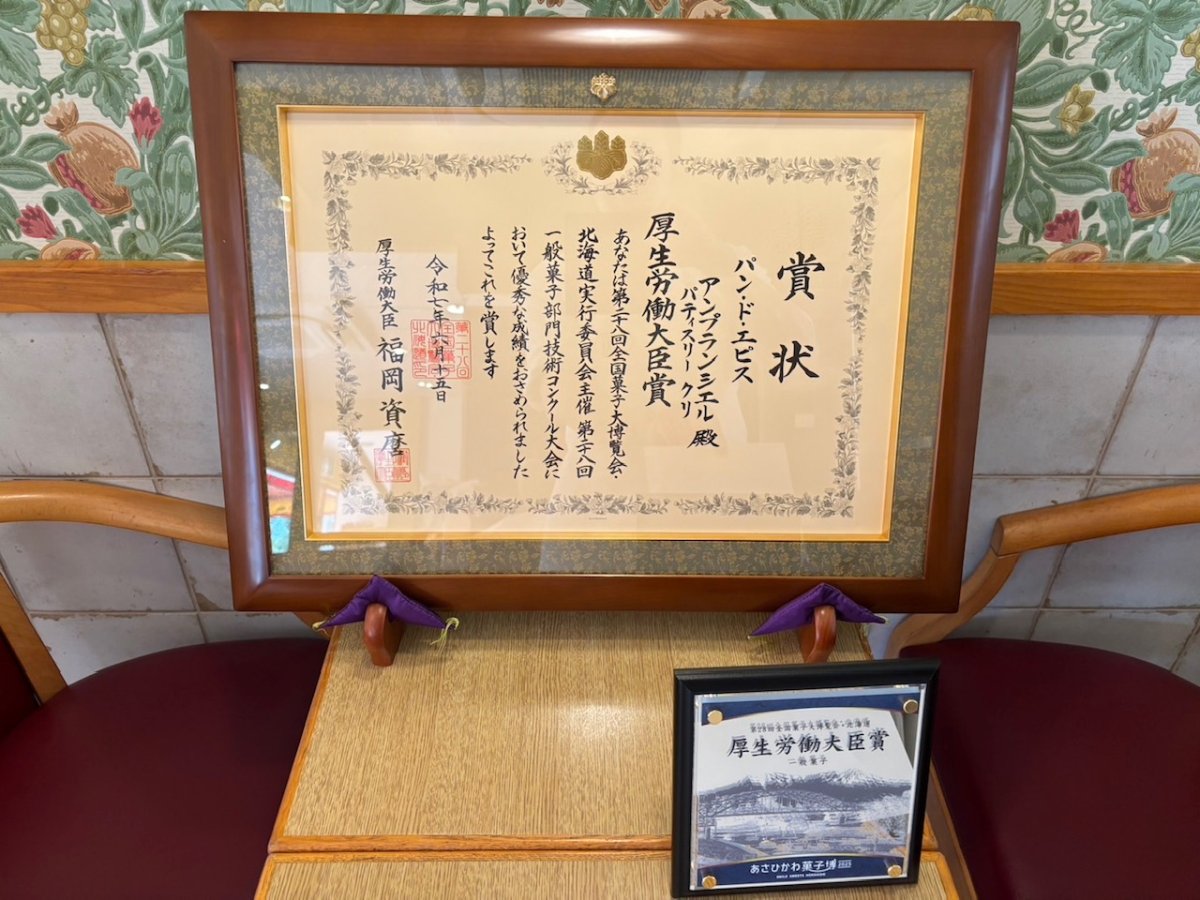 賞状
パン・ド・エピス
アンプランシエル
パティスリー クリ
殿
厚生労働大臣賞
あなたは第二十八回全国菓子大博覧会・
北海道実行委員会主催 第二十八回
一般菓子部門技術コンクール大会に
おいて優秀な成績をおさめられました
よってこれを賞します
令和七年六月十五日
厚生労働大臣 福岡資麿
第28回全国菓子大博覧会・北海道
厚生労働大臣賞
一般菓子
あさひかわ菓子博2025